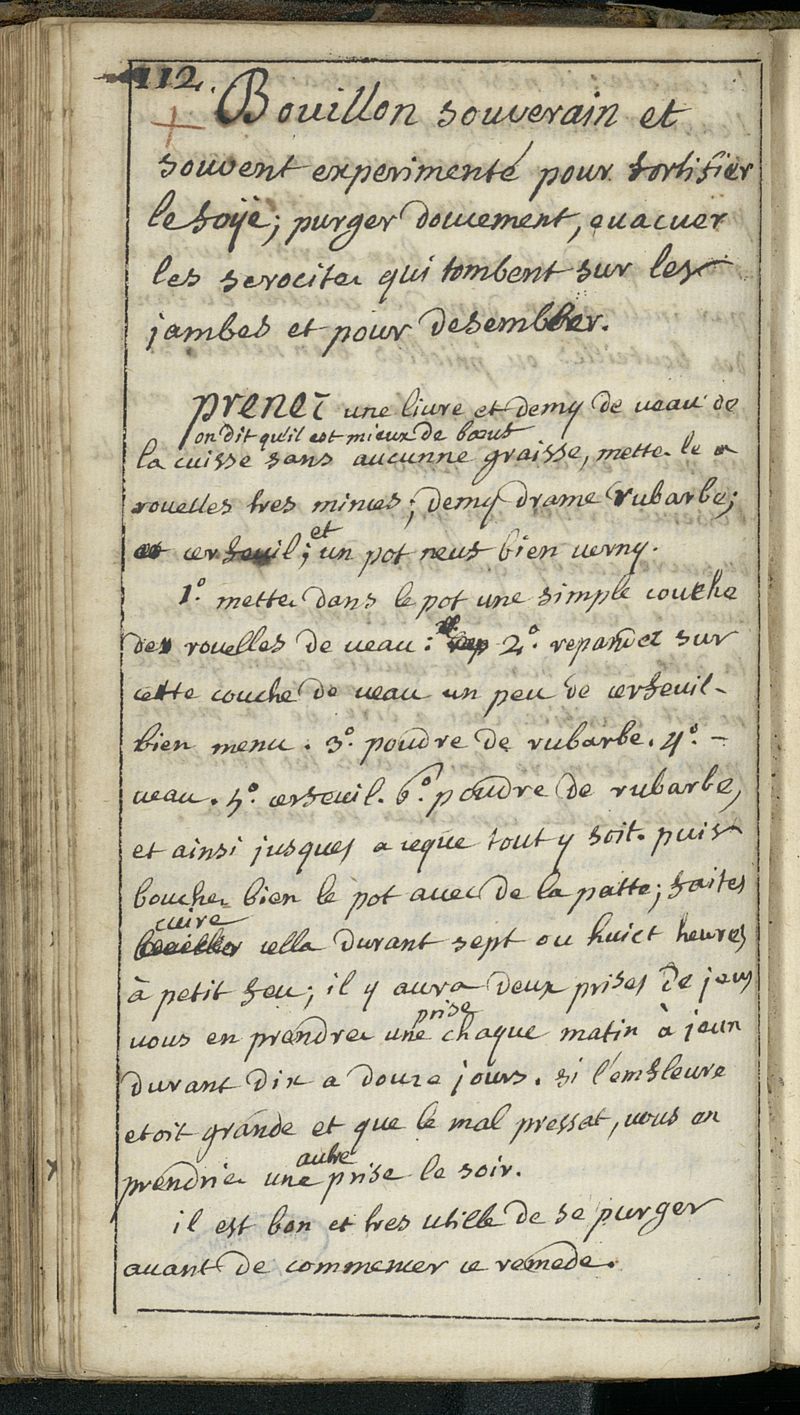 112.
Bouillon souverain et
souvent experimenté pour fortifier
le foÿe; purger doucement, evacuer
les serocitez qui tombent sur les
jambes et pour desembler.
prenez une livre et demy de veau de
on dit qu'il est mieux de bœuf
la cuisse sans aucunne graisse, mettez le en
rouelles tres minces; demy drame rubarbe;
et
cerfeuil; un pot neuf bien verny.
1º. mettez dans le pot une simple couche
des rouelles de veau: 2º. repandez sur
cette couche de veau un peu de cerfeuil
bien menu. 3º. poudre de rubarbe. 4º. -
veau. 5º. cerfeuil. 6º. poudre de rubarbe,
et ainsi jusques a ceque tout y soit. puis
bouchez bien le pot avec de la patte; faites
cuire
cella durant sept ou huict heures
à petit feu; il y aura deux prises de jeus
prise
vous en prendrez une chaque matin à jeun
durant dix a douze jours. si l'emfleure
etoit grande et que le mal pressat, vous en
autre
prendriez une prise le soir.
il est bon et tres utille de se purger
avant de commencer ce remede.